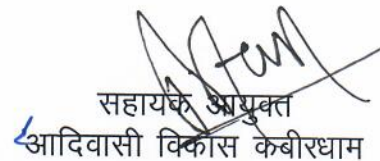 सहायक आयुक्त
आदिवासी विकास कबीरधाम